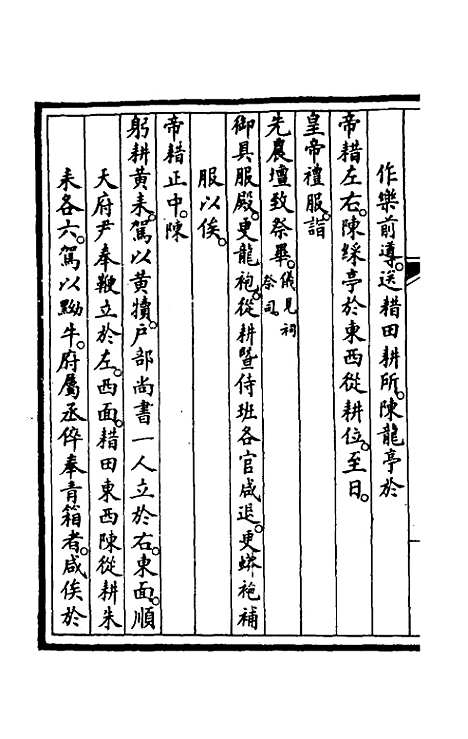 作樂前導。送耤田耕所。陳龍亭於
帝耤左右。陳綵亭於東西從耕位。至日。
皇帝禮服詣
先農壇致祭畢。儀見祠祭司。
御具服殿。更龍袍。從耕暨侍班各官咸退。更蟒袍補
服以俟。
帝耤正中。陳
躬耕黃耒。駕以黃犢。戶部尚書一人立於右。東面。順
天府尹奉鞭立於左。西面。耤田東西陳從耕朱
耒各六。駕以黝牛。府屬丞倅奉青箱者。咸俟於